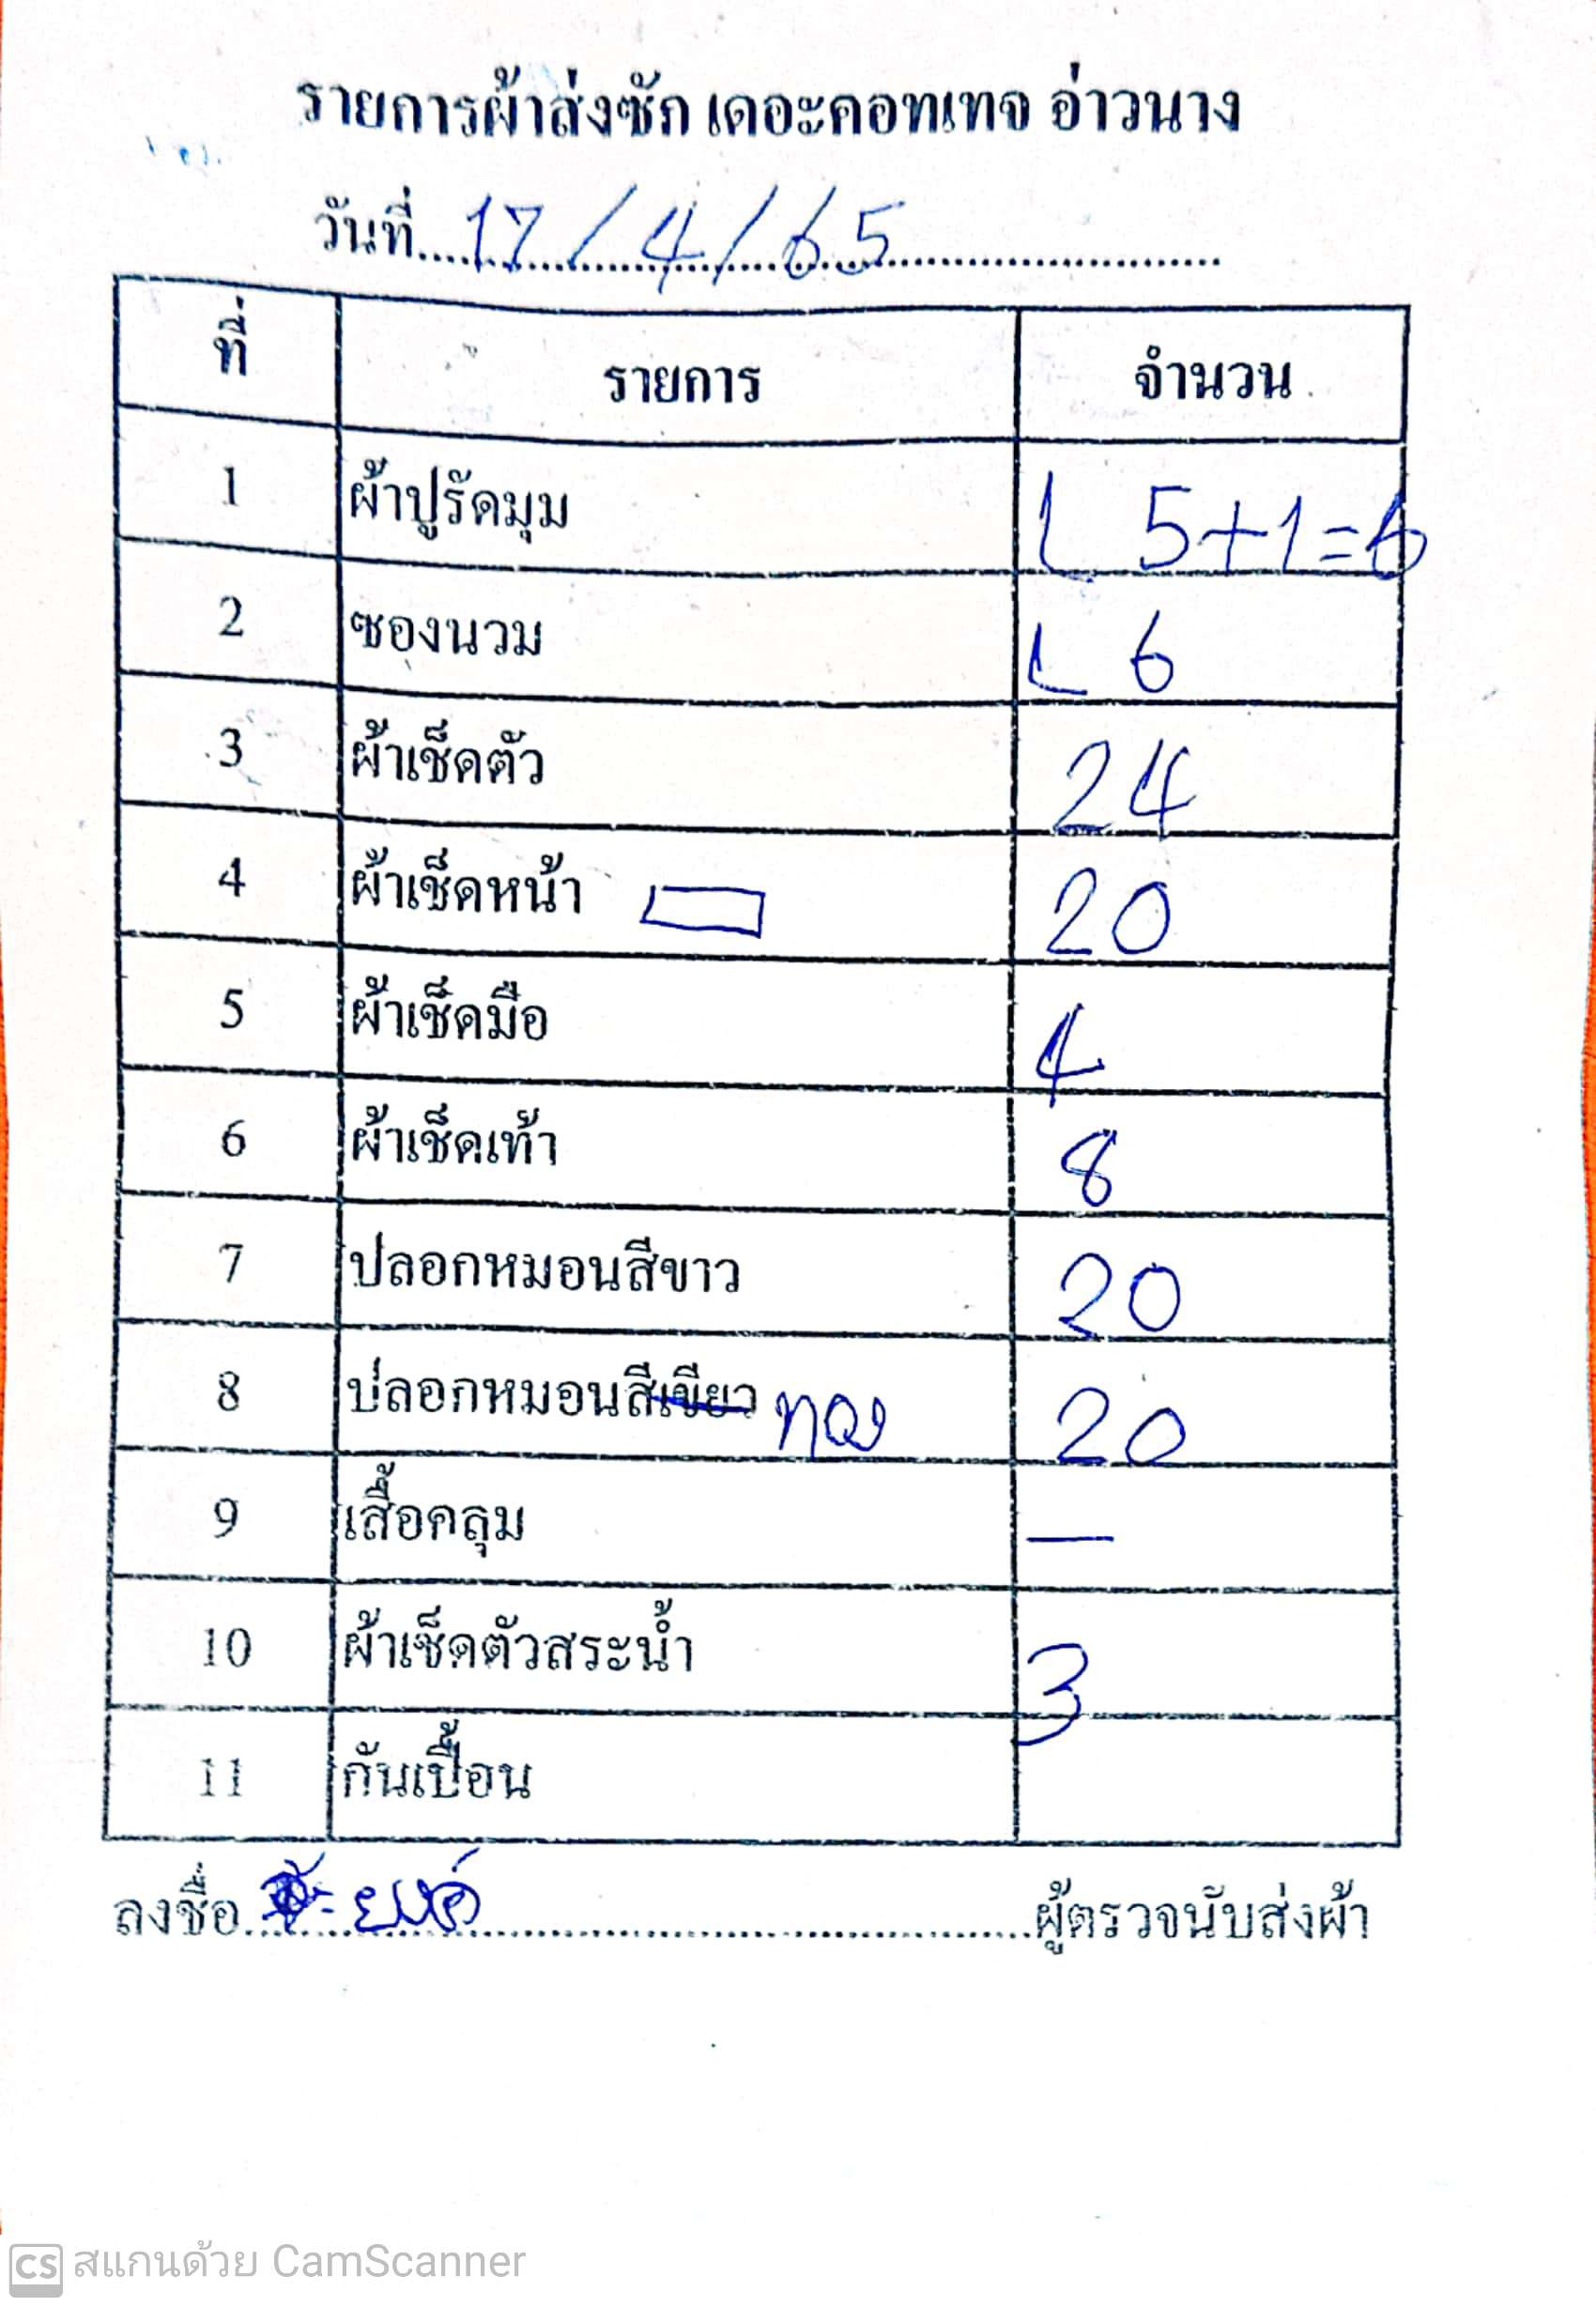 รายการผ้าส่งซัก เดอะคอทเทจ อ่าวนาง
วันที่ 17/4/65
ที่ รายการ จำนวน
1 ผ้าปูรัดมุม L 5+1=6
2 ซองนวม L 6
3 ผ้าเช็ดตัว 24
4 ผ้าเช็ดหน้า 20
5 ผ้าเช็ดมือ 4
6 ผ้าเช็ดเท้า 8
7 ปลอกหมอนสีขาว 20
8 ปลอกหมอนสีเขียว ทอง 20
9 เสื้อคลุม —
10 ผ้าเช็ดตัวสระน้ำ 3
11 กันเปื้อน
ลงชื่อ ผู้ตรวจนับส่งผ้า
CS สแกนด้วย CamScanner